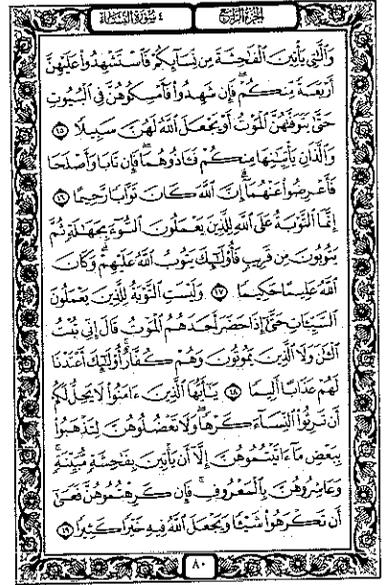 الجزء الرابع
٤ سورة النساء
وَالَّٰتِي يَأْتِينَ الْفَٰحِشَةَ مِن نِّسَآئِكُمْ فَاسْتَشْهِدُوا۟ عَلَيْهِنَّ
أَرْبَعَةً مِّنكُمْ ۖ فَإِن شَهِدُوا۟ فَأَمْسِكُوهُنَّ فِي الْبُيُوتِ
حَتَّىٰ يَتَوَفَّىٰهُنَّ الْمَوْتُ أَوْ يَجْعَلَ اللَّهُ لَهُنَّ سَبِيلًا ١٥
وَالَّذَانِ يَأْتِيَٰنِهَا مِنكُمْ فَـَٔاذُوهُمَا ۖ فَإِن تَابَا وَأَصْلَحَا
فَأَعْرِضُوا۟ عَنْهُمَآ ۗ إِنَّ اللَّهَ كَانَ تَوَّابًا رَّحِيمًا ١٦
إِنَّمَا التَّوْبَةُ عَلَى اللَّهِ لِلَّذِينَ يَعْمَلُونَ السُّوٓءَ بِجَهَٰلَةٍ ثُمَّ
يَتُوبُونَ مِن قَرِيبٍ فَأُو۟لَٰٓئِكَ يَتُوبُ اللَّهُ عَلَيْهِمْ ۗ وَكَانَ
اللَّهُ عَلِيمًا حَكِيمًا ١٧ وَلَيْسَتِ التَّوْبَةُ لِلَّذِينَ يَعْمَلُونَ
السَّيِّـَٔاتِ حَتَّىٰٓ إِذَا حَضَرَ أَحَدَهُمُ الْمَوْتُ قَالَ إِنِّي تُبْتُ
الْـَٰٔنَ وَلَا الَّذِينَ يَمُوتُونَ وَهُمْ كُفَّارٌ ۚ أُو۟لَٰٓئِكَ أَعْتَدْنَا
لَهُمْ عَذَابًا أَلِيمًا ١٨ يَٰٓأَيُّهَا الَّذِينَ ءَامَنُوا۟ لَا يَحِلُّ لَكُمْ
أَن تَرِثُوا۟ النِّسَآءَ كَرْهًا ۖ وَلَا تَعْضُلُوهُنَّ لِتَذْهَبُوا۟
بِبَعْضِ مَآ ءَاتَيْتُمُوهُنَّ إِلَّآ أَن يَأْتِينَ بِفَٰحِشَةٍ مُّبَيِّنَةٍ ۚ
وَعَاشِرُوهُنَّ بِالْمَعْرُوفِ ۚ فَإِن كَرِهْتُمُوهُنَّ فَعَسَىٰٓ
أَن تَكْرَهُوا۟ شَيْـًٔا وَيَجْعَلَ اللَّهُ فِيهِ خَيْرًا كَثِيرًا ١٩
٨٠